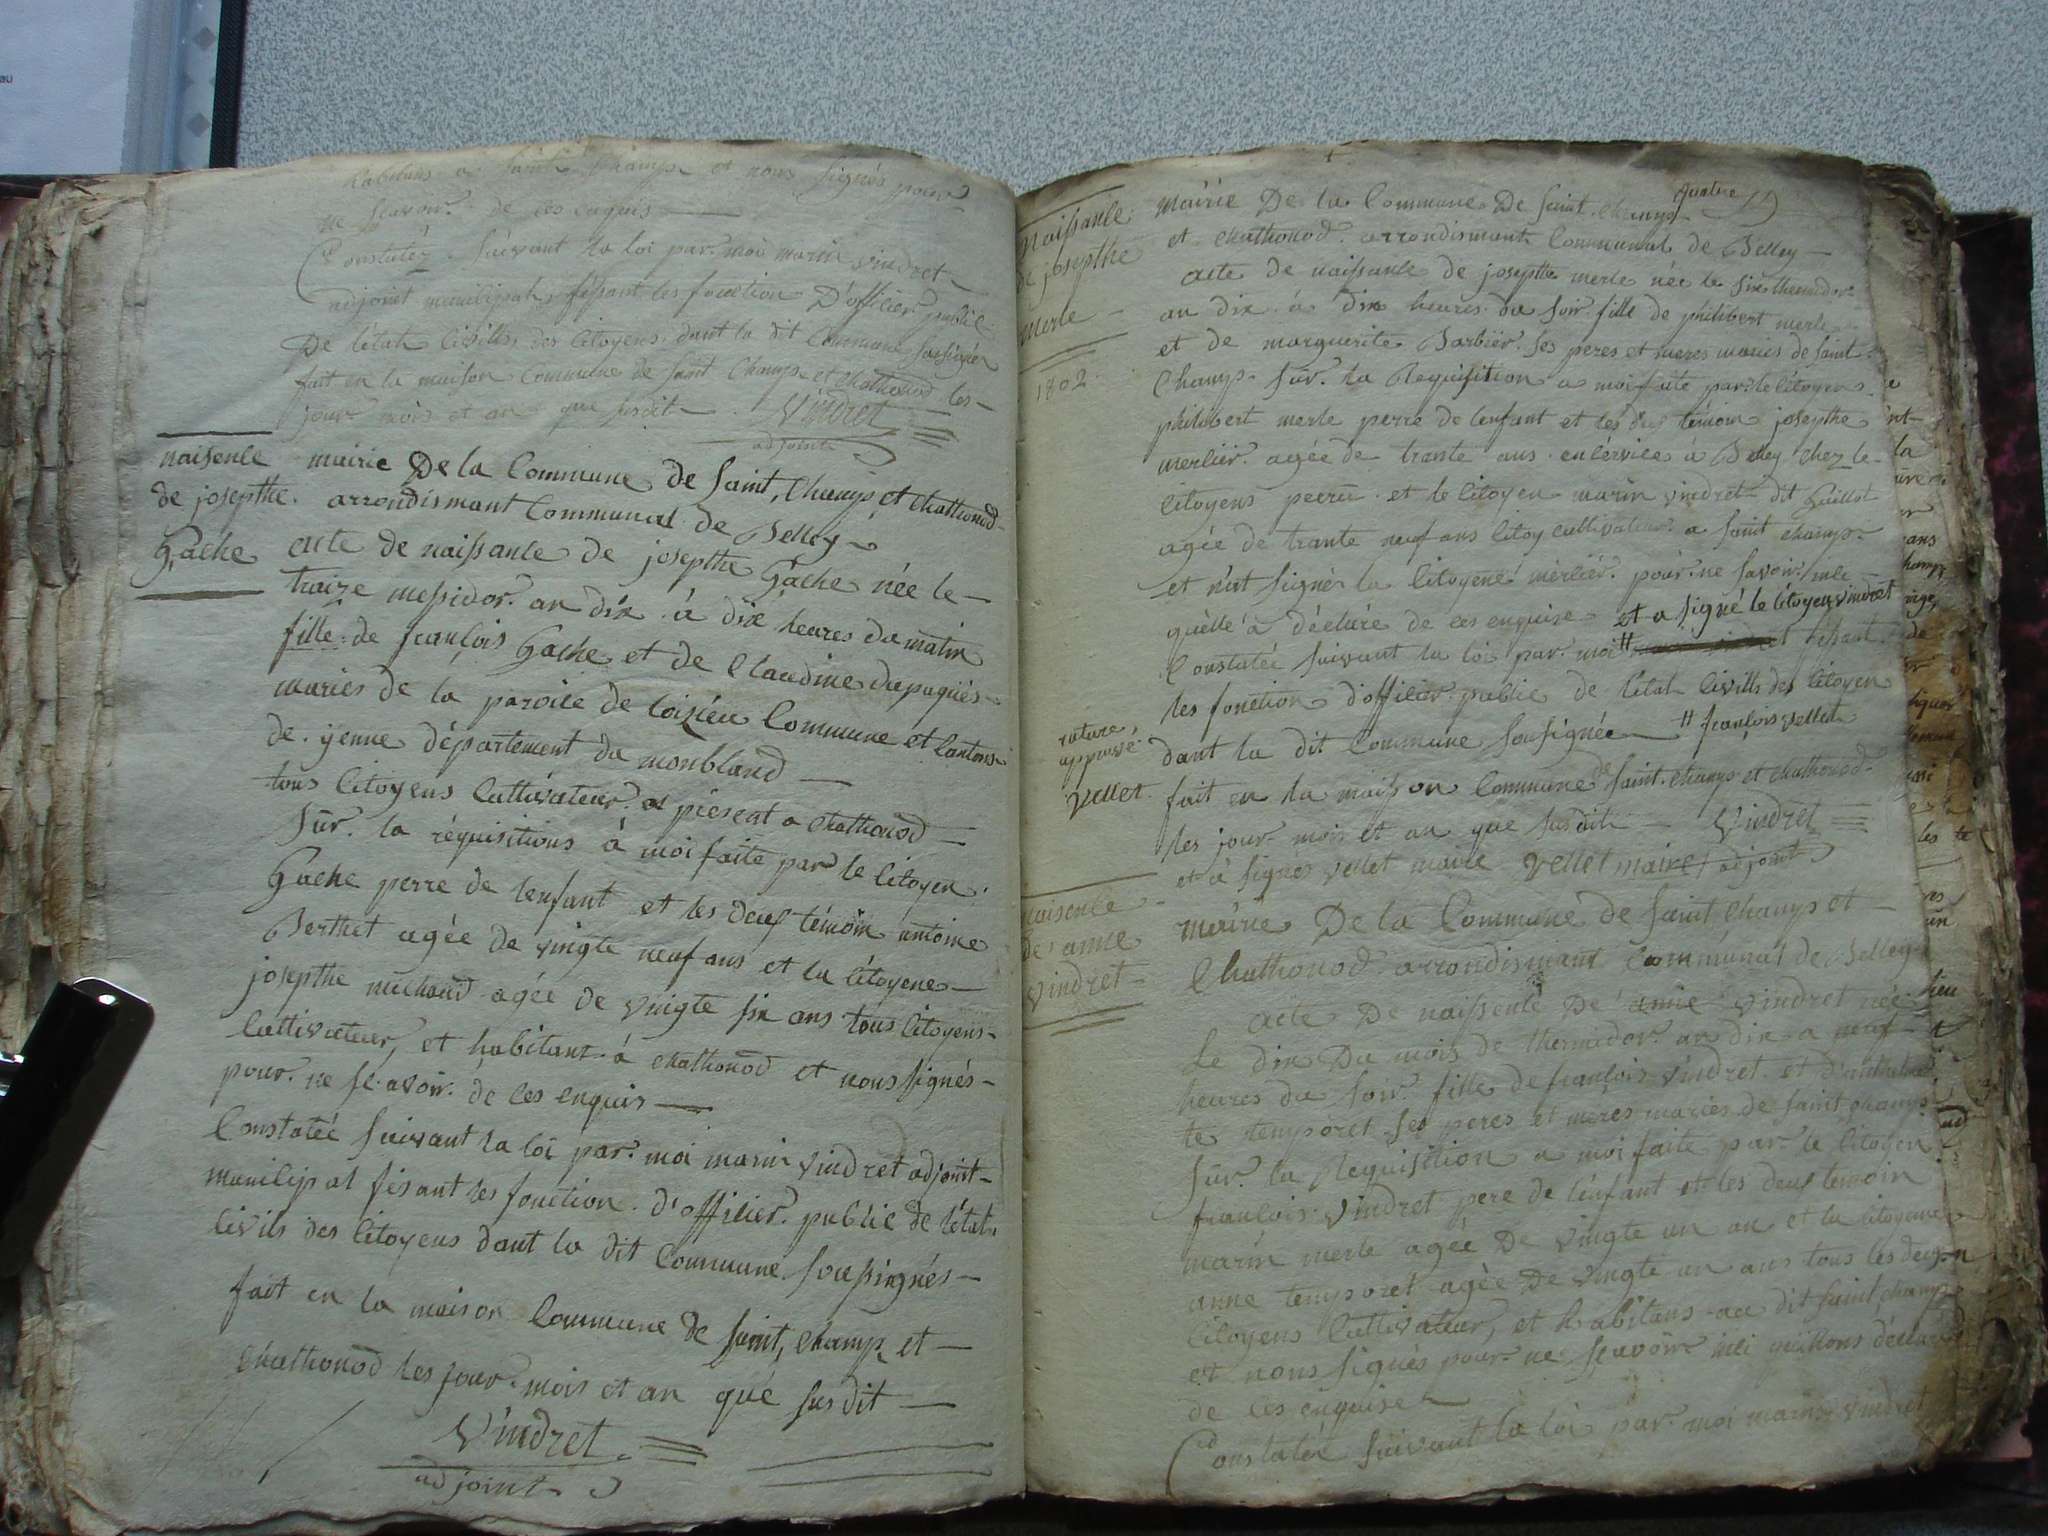 au
habitans a saint Champs et nous signés pour
ne scavoir de ces enquis
Constatéz Suivant la loi par moi marin vindret
adjoint municipal, fesant les fonction D'officier public
De l'état Civills des Citoyens dant la dit Commune sousignés
fait en la maison Commune de saint Champs et Chathonod les
jour mois et an que susdit Vindret
adjoint
naisence
de josepthe
Gache
mairie De la Commune de Saint, Champs et Chathonod
arrondismant Communal de Belley
acte de naissance de josepthe Gache née le
traize messidor an dix à dix heures du matin
fille de françois Gache et de Claudine dupaquiés
mariés de la paroice de loizieu Commune et Cantons
de yenne département du monbland
tous Citoyens Cultivateur a présent a Chathonod
Sur la réquisitions à moi faite par le Citoyen
Gache perre de lenfant et les deus témoin antoine
Berthet agée de vingte neuf ans et la Citoyene
josepthe michaud agée de vingte six ans tous Citoyens
Cultivateur, et habitant à Chathonod et nous signés
pour ne scavoir de ces enquis
Constatéé suivant la loi par moi marin vindret adjoint
municipal fesant les fonction d'officier public de l'état
Civils des Citoyens dant la dit Commune sousignés
fait en la maison Commune de saint, Champs et
Chathonod les jour mois et an que susdit
Vindret
adjoint
quatre
Naissance
de josepthe
merle
1802
mairie De la Commune De saint Champs
et Chathonod arrondismant Communal de Belley
acte de naissance de josepthe merle née le six thermidor
an dix à dix heures du soir fille de philibert merle
et de marguerite Barbier ses peres et meres mariés de saint
Champs sur la Requisition a moi faite par le Citoyen
philibert merle perre de lenfant et les deus témoin josepthe
merlier agée de trante ans en services à Beley chez le
Citoyens et le Citoyen marin vindret dit Guillot
agée de trante neuf ans Citoy cultivateur a saint champs
et n'at signér la Citoyene mérlier pour ne savoir
quelle à déclaré de ces enquise et a signé le Citoyen vindret
Constatée suivant la loi par moi # fesant
les fonction d'officier public de l'état Civills des Citoyen
dant la dit Commune sousignée # françois vellet
rature
approuvé
vellet
fait en la maison Commune de saint champs et Chathonod
les jour mois et an que susdit Vindret
et à signer vellet maire vellet maire adjoint
naisence
de anne
vindret
mairie De la Commune de saint Champs et
Chathonod arrondismant Communal de Belley
acte De naissence De anne vindret née
Le dix Du mois de thermidor an dix a neuf
heures du soir fille de françois vindret et d'anthelmet
te temporet ses peres et meres mariés de saint Champs
sur la Requisition a moi faite par le Citoyen
françois vindret pere de lenfant et les deus temoin
marin merle agée De vingte un an et la Citoyenne
anne temporet agée De vingte un ans tous les deux
Citoyens Cultivateur, et habitans au dit saint champs
et nous signés pour ne scavoir déclaré
de ces enquise
Constatée suivant la loi par moi marin vindret